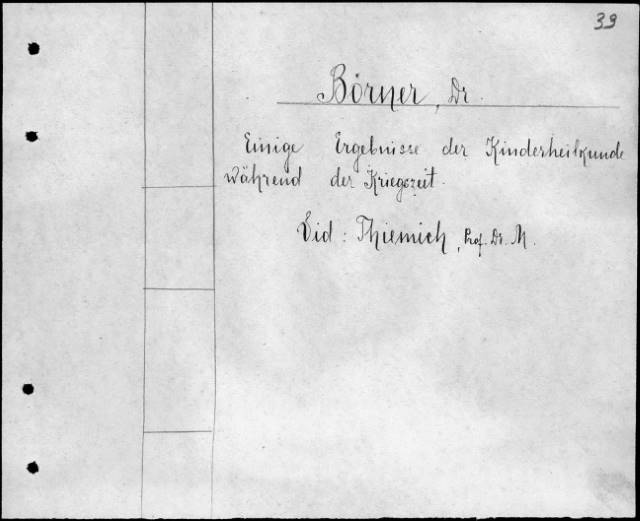 39
Börner, Dr.
Einige Ergebnisse der Kinderheilkunde
während der Kriegszeit.
Vid: Thiemich, Prof. Dr. M.